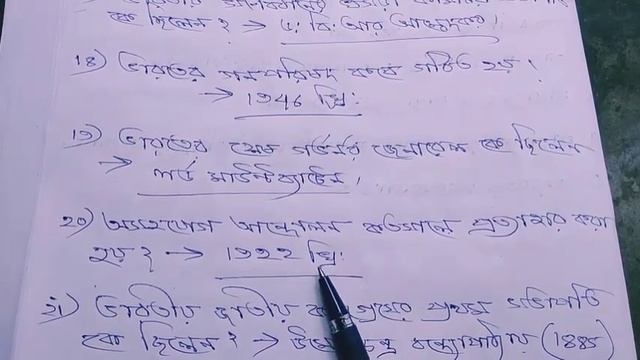 কে ছিলেন ? → ড: বি: আর আম্বেদকর।
18) ভারতের গনপরিষদ কবে গঠিত হয় !
→ 1946 খ্রি:
19) ভারতের শেষ গভর্নর জেনারেল কে ছিলেন
→ লর্ড মাউন্টব্যাটেন।
20) অসহযোগ আন্দোলন কতসালে প্রত্যাহার করা
হয় ? → 1922 খ্রি:
21) ভারতীয় জাতীয় প্রথম সভাপতি
কে ছিলেন ? → চন্দ্র বন্দ্যোপাধ্যায় (1885)